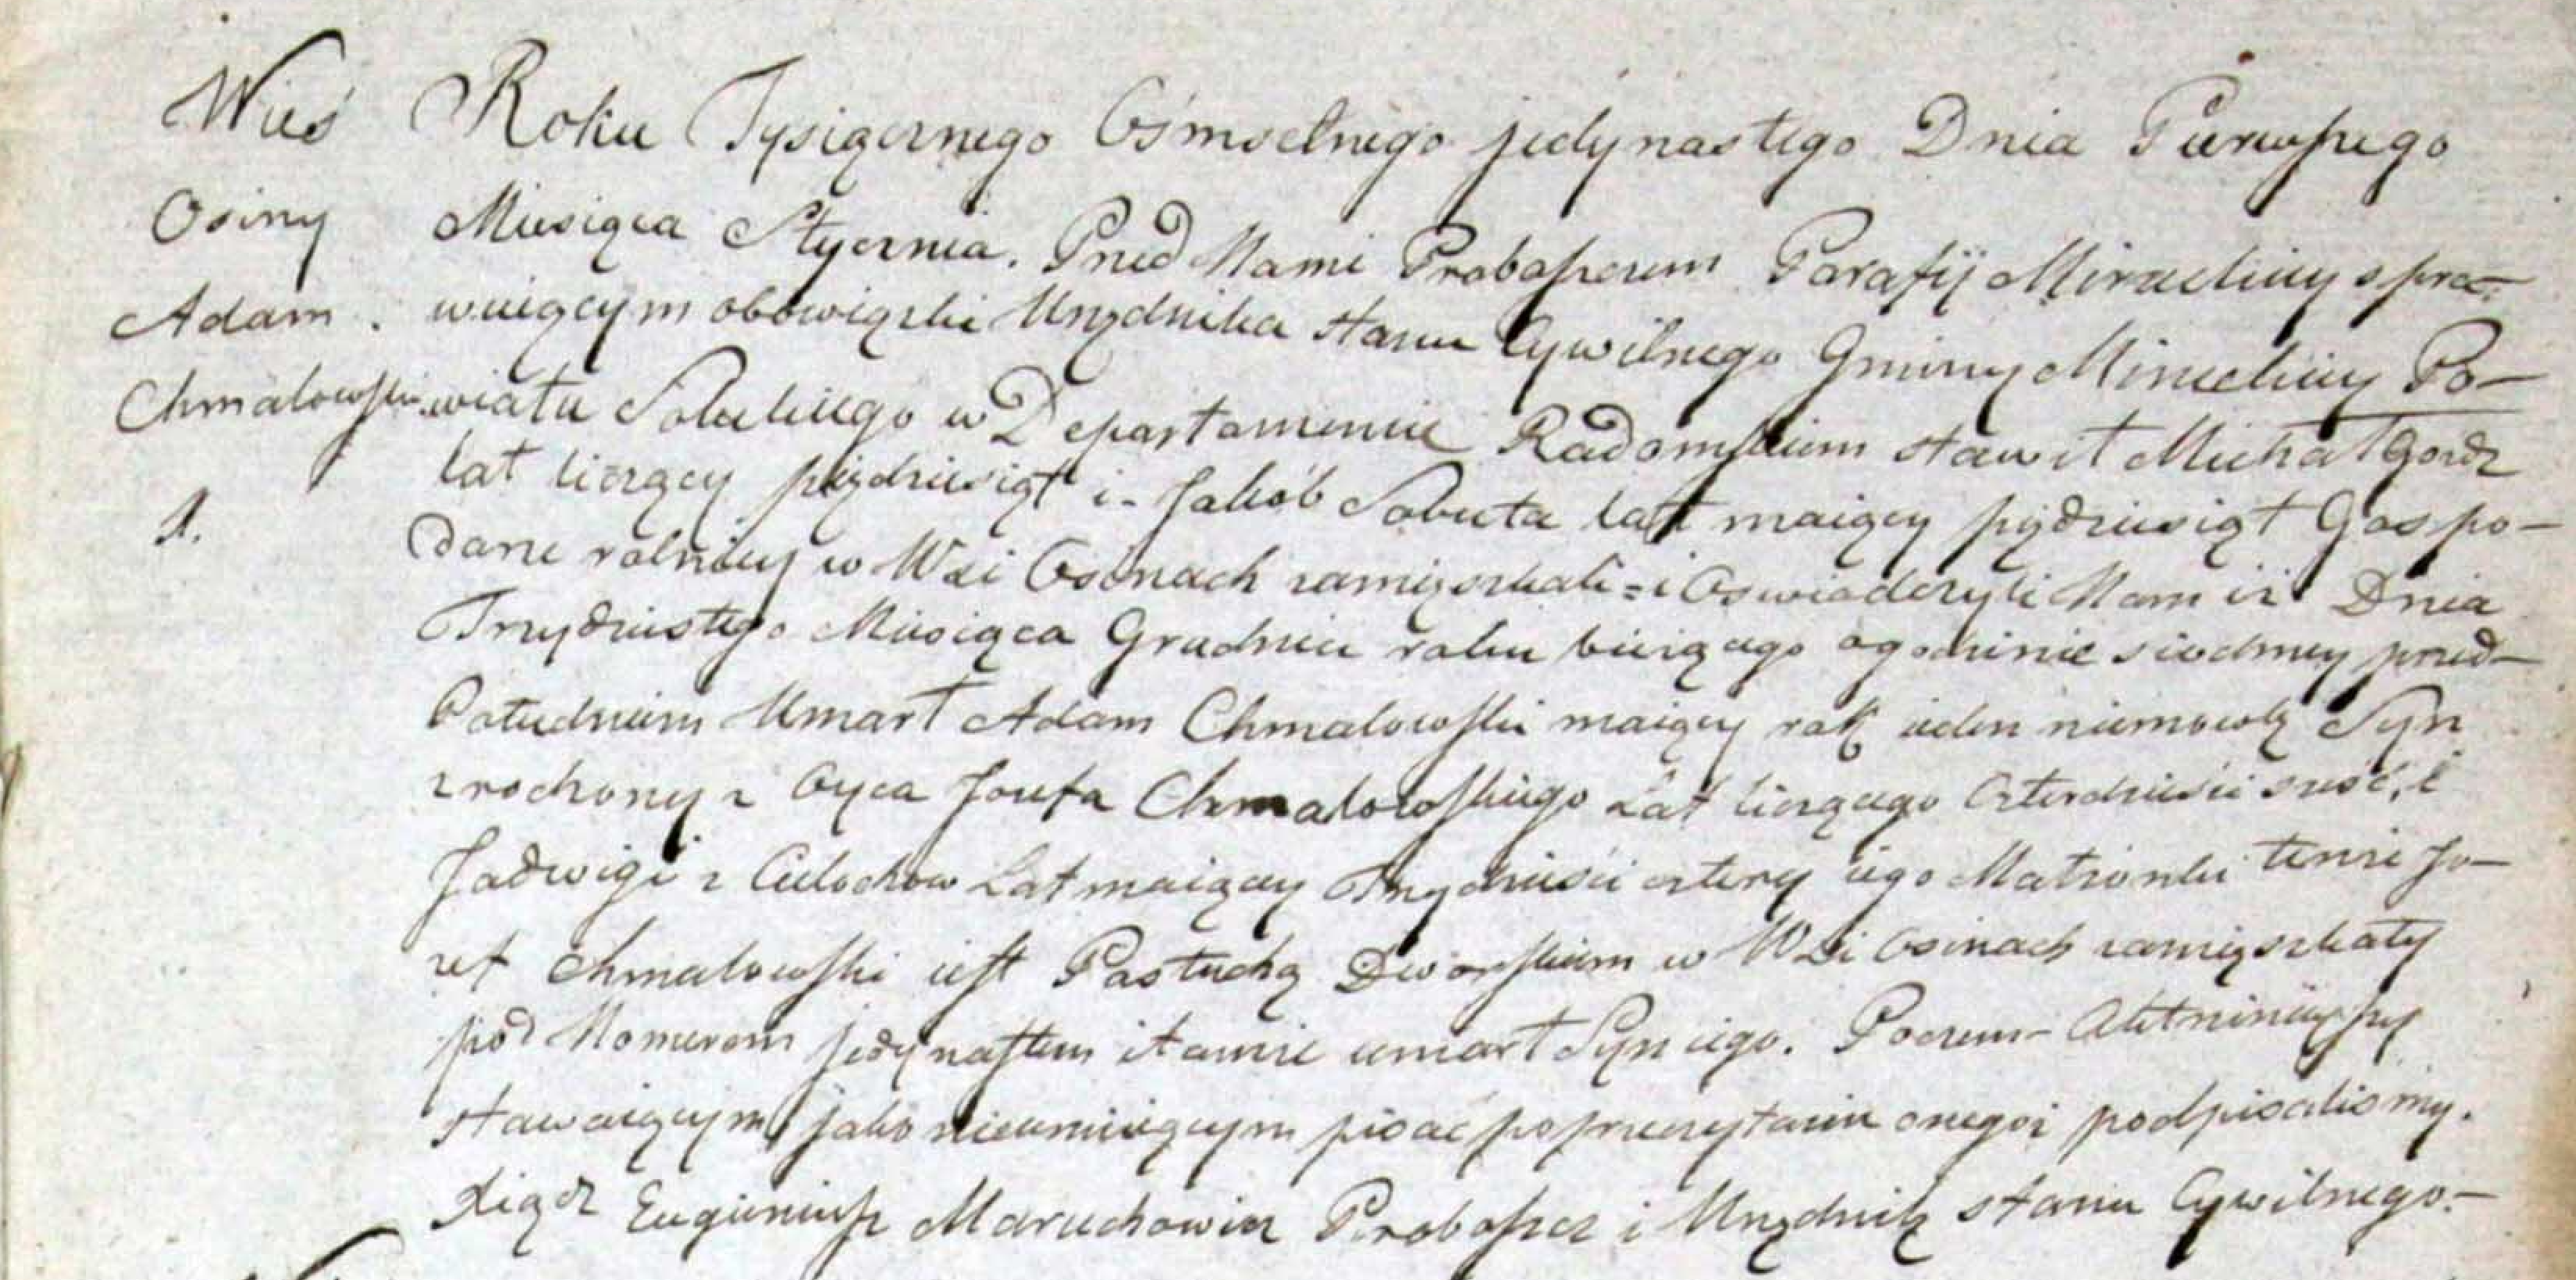 Wieś
Osiny
Adam
Chmalowski
1.
Roku Tysiącznego Osmsetnego jedynastego Dnia Pierwszego
Miesiąca Stycznia. Przed Nami Proboszczem Parafij Mirzeckiey spra-
wuiącym obowiązki Urzędnika stanu Cywilnego Gminy Mirzeckiey Po-
wiatu Soleckiego w Departamencie Radomskiem stawił Michał Gordz
lat liczący pięzdziesiąt i Jakób Sobuta lat maiący piędziesiąt Gospo-
darze rolniczy w Wsi Osinach zamięszkali i Oswiadczyli Nam iż Dnia
Trzydziestego Miesiąca Grudnia roku bieżącego o godzinie siodmey przed-
Południem Umarł Adam Chmalowski maiący rok ieden niemowlę Syn
zrodzony z Oyca Jozefa Chmalowskiego Lat liczącego Czterdziesci szesć, i
Jadwigi z Cielochow Lat maiącey Trzydziesci cztery iego Małżonki tenże Jo-
zef Chmalowski iest Pastuchą Dworskiem w Wsi Osinach zamięszkały
pod Nomerem jedynastem i tamże umarł Syn iego. Poczem Akt ninieyszy
stawaiącym jako nieumieiącym pisać po przeczytaniu onegoż podpisalismy.
Xiądz Eugieniusz Maruchowicz Proboszcz i Urzędnik stanu Cywilnego.-